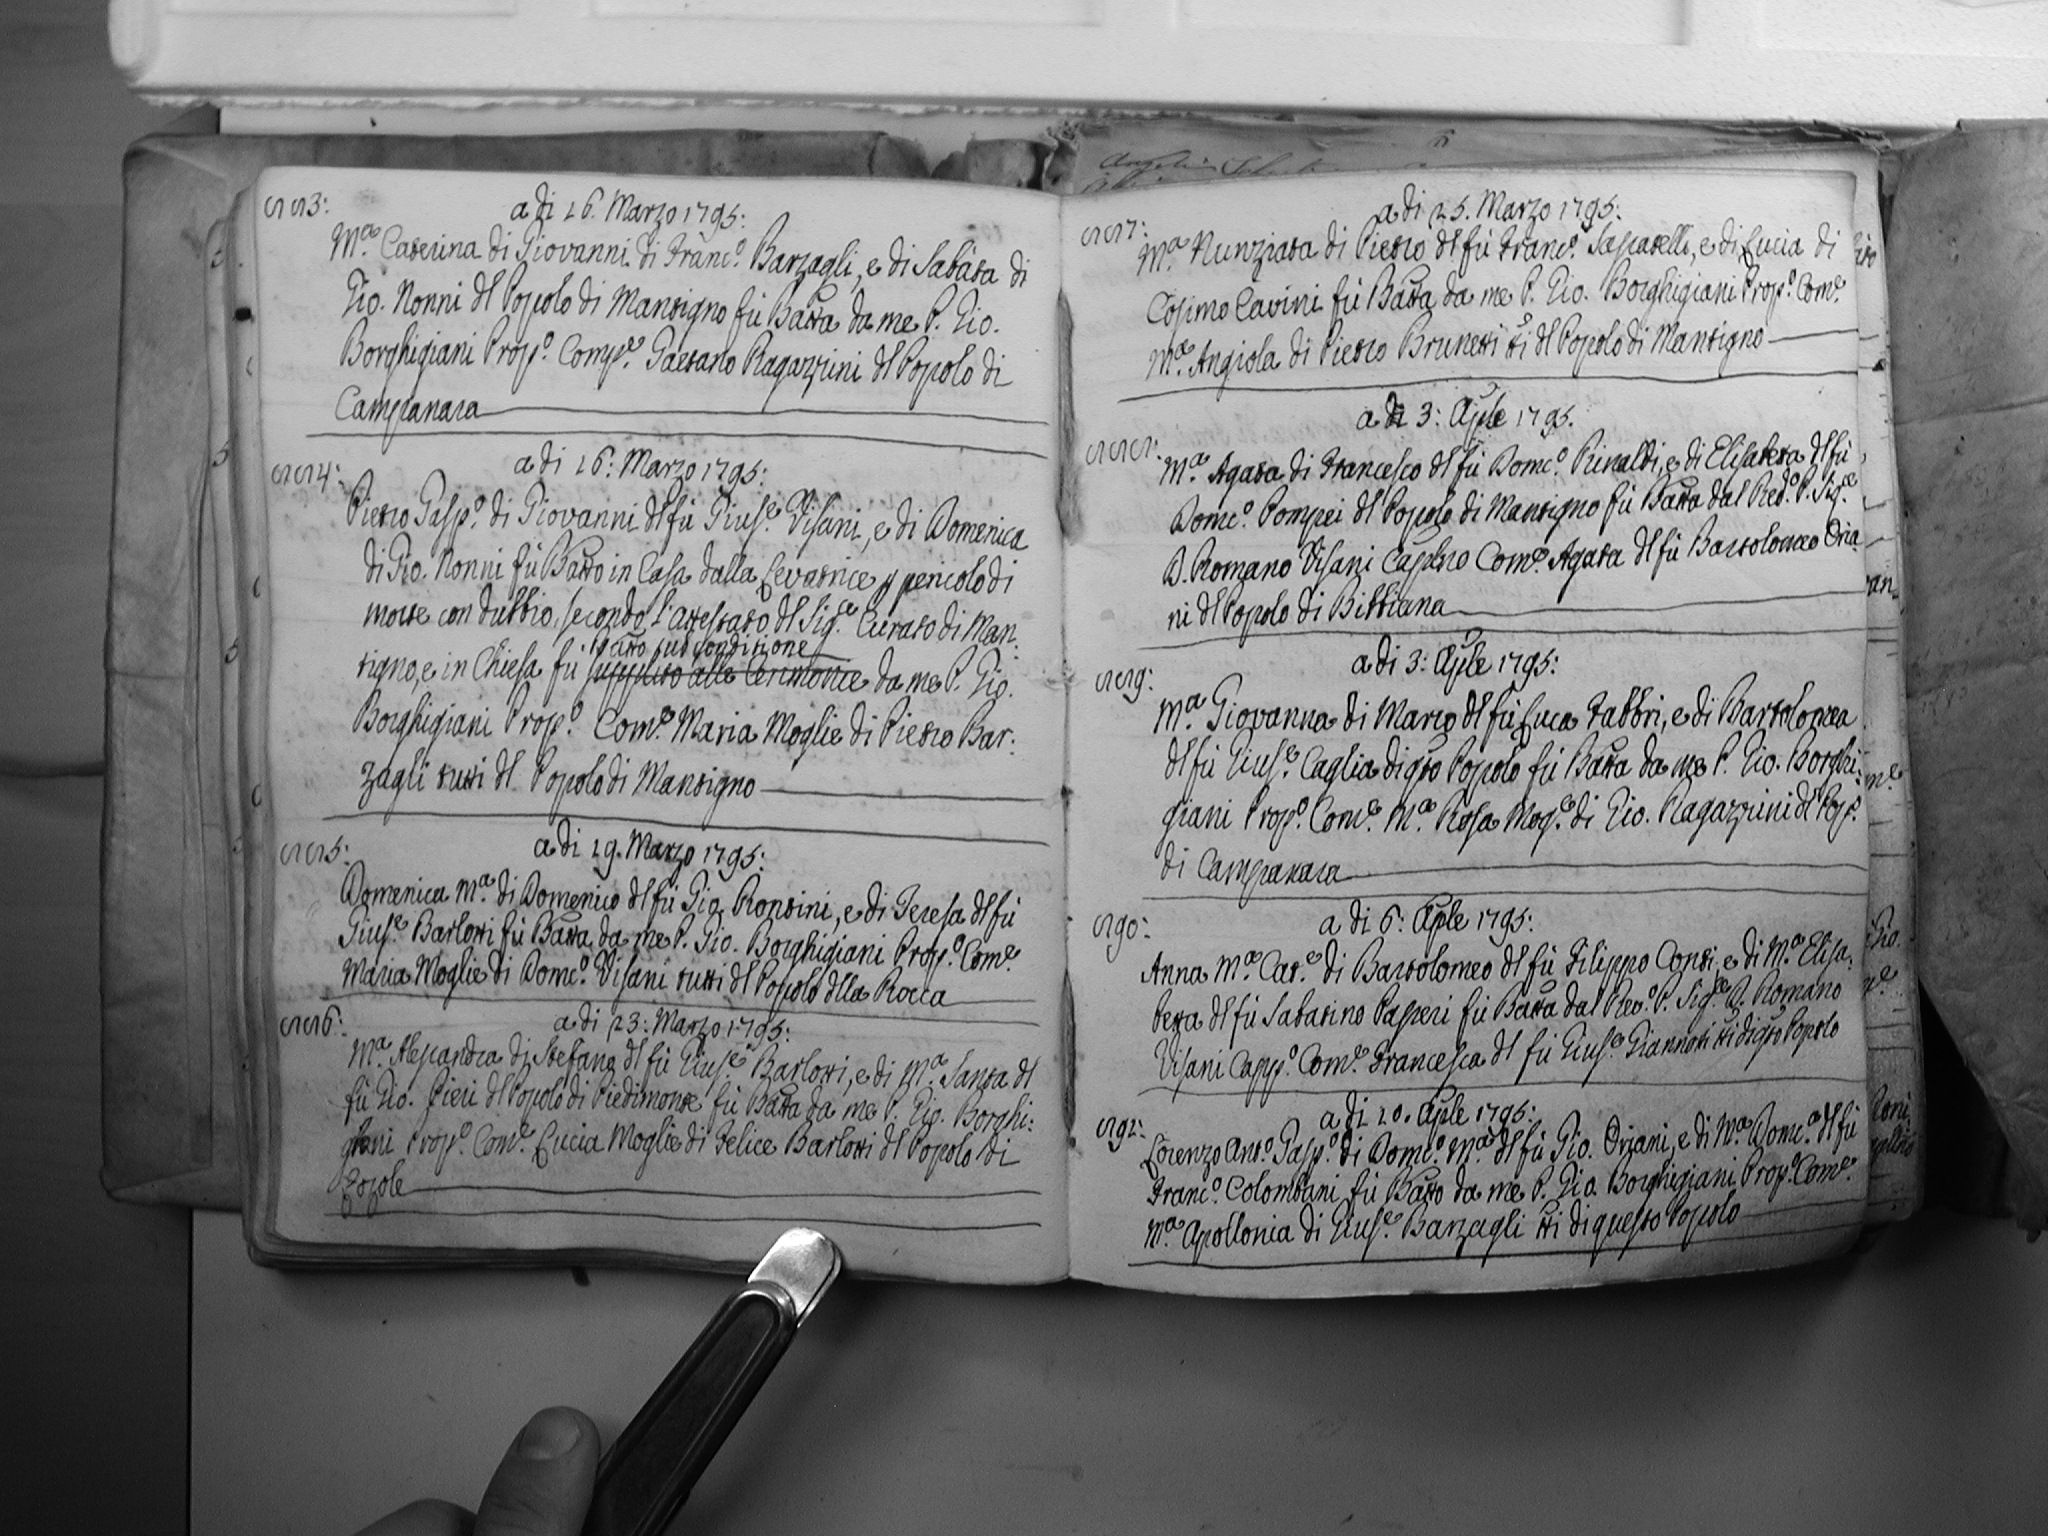 553:
a di 16. Marzo 1795:
M.ª Caterina di Giovanni di Franc.º Barzagli, e di Sabata di
Gio. Nonni del Popolo di Mantigno fù Batta da me P. Gio.
Borghigiani Prop.º Comp.e Gaetano Ragazzini del Popolo di
Campanara
554:
a di 16: Marzo 1795:
Pietro Gasp.º di Giovanni del fù Gius.e Visani, e di Domenica
di Gio. Nonni fù Batto in Casa dalla Levatrice p pericolo di
morte con dubbio, secondo l'attestato del Sig.e Curato di Man:
Batto sub conditione
tigno, e in Chiesa fù supplito alle Cerimonie da me P. Gio.
Borghigiani Prop.º Com.e Maria Moglie di Pietro Bar:
zagli tutti del Popolo di Mantigno
555:
a di 19. Marzo 1795:
Domenica M.ª di Domenico del fù Gio. Rontini, e di Teresa del fù
Gius.e Barlotti fù Batta da me P. Gio. Borghigiani Prop.º Com.e
Maria Moglie di Dom.co Visani tutti del Popolo della Rocca
556:
a di 23: Marzo 1795:
M.ª Alesandra di Stefano del fù Gius.e Barlotti, e di M.ª Santa del
fù Gio. Pieri del Popolo di Piedimonte fù Batta da me P. Gio. Borghi:
giani Prop.º Com.e Lucia Moglie di Felice Barlotti del Popolo di
557:
a di 25. Marzo 1795:
M.ª Nunziata di Pietro del fù Franc.º Saputelli, e di Lucia di
Cosimo Cavini fù Batta da me P. Gio. Borghigiani Prop.º Com.e
M.ª Angiola di Pietro Brunetti tti del Popolo di Mantigno
a di 3: Aple 1795.
M.ª Agata di Francesco del fù Domc.º Rinaldi, e di Elisabetta del fù
Domc.º Pompei del Popolo di Mantigno fù Batta dal Red.º P. Sig.e
D. Romano Visani Caplno Com.e Agata del fù Bartolomeo Oria:
ni del Popolo di Bibbiana
559:
a di 3: Aple 1795:
M.ª Giovanna di Marco del fù Luca Fabbri, e di Bartolomea
del fù Gius.e Caglia di qto Popolo fù Batta da me P. Gio. Borghi:
giani Prop.º Com.e M.ª Rosa Mog.e di Gio. Ragazzini del Pop.º
di Campanara
590:
a di 6: Aple 1795:
Anna M.ª Cat.e di Bartolomeo del fù Filippo Conti, e di M.ª Elisa:
betta del fù Sabatino Pasperi fù Batta dal Rev.º P. Sig.e D. Romano
Visani Capp.º Com.e Francesca del fù Gius.e Giannotti tti di qto Popolo
591:
a di 10. Aple 1795:
Lorenzo Ant.º Gasp.º di Domc.º M.ª del fù Gio. Oriani, e di M.ª Domc.ª del fù
Franc.º Colombani fù Batto da me P. Gio. Borghigiani Prop.º Com.e
M.ª Apollonia di Gius.e Barzagli tti di questo Popolo